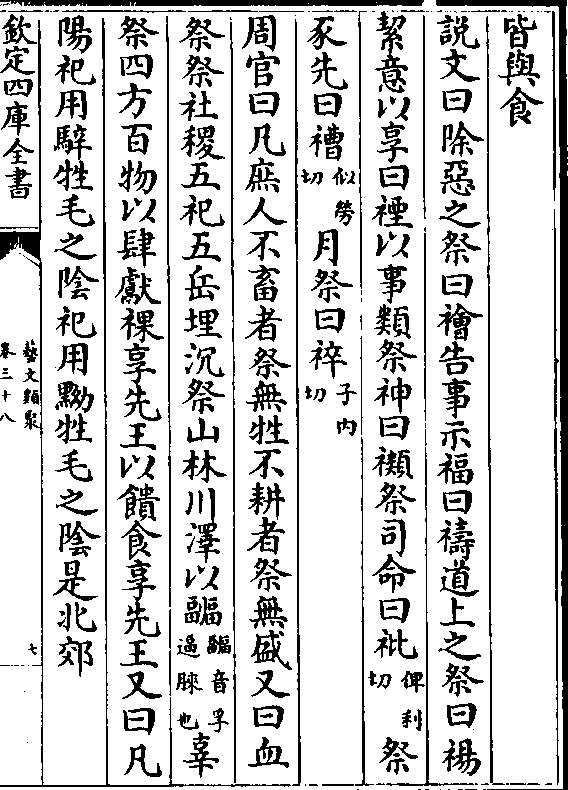 皆與食
説文曰除惡之祭曰禬告事示福曰禱道上之祭曰禓
絜意以享曰禋以事類祭神曰禷祭司命曰祉俾利切祭
豕先曰禮似勞切月祭曰祽子内切
周官曰凡庶人不畜者祭無牲不耕者祭無盛又曰血
祭祭社稷五祀五岳埋沉祭山林川澤以疈疈音孚逼脨也辜
祭四方百物以肆獻祼享先王以饋食享先王又曰凡
陽祀用騂牲毛之陰祀用黝牲毛之陰是北郊
欽定四庫全書
藝文類聚
卷三十八
七